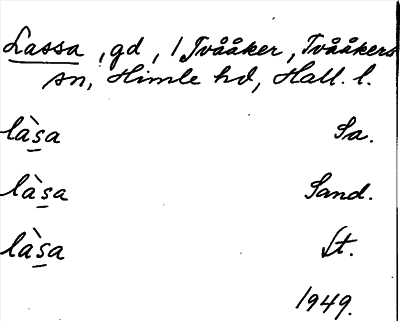 Lassa, gd, 1 Tvååker, Tvååkers
sn, Himle hd, Hall. l.
là̀sa Sa.
làsa Sand.
làsa St.
1949.